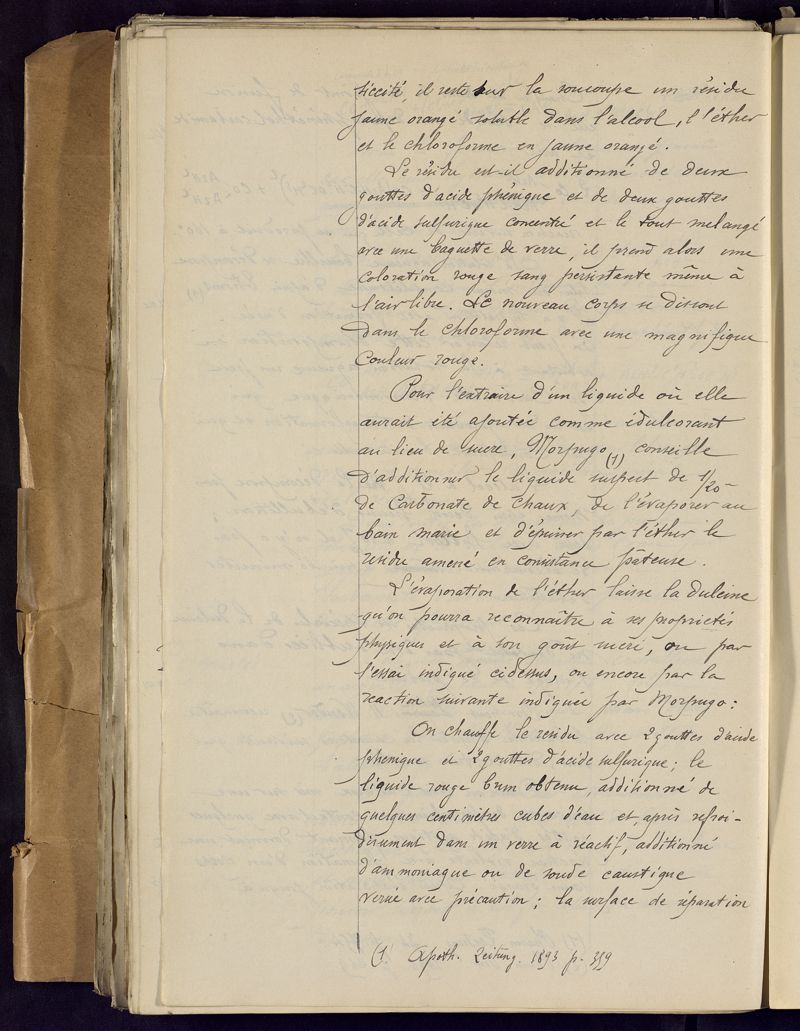 siccité, il reste sur la soucoupe un résidu
jaune orangé soluble dans l'alcool, l'éther
et le chloroforme en jaune orangé.
Le résidu est-il additionné de deux
gouttes d'acide phénique et de deux gouttes
d'acide sulfurique concentré et le tout melangé
avec une baguette de verre, il prend alors une
coloration rouge sang persistante même à
l'air libre. Le nouveau corps se dissout
dans le chloroforme avec une magnifique
couleur rouge.
Pour l'extraire d'un liquide où elle
aurait été ajoutée comme édulcorant
au lieu de sucre, Morpugo (1) conseille
d'additionner le liquide suspect de 1/20
de Carbonate de chaux, de l'évaporer au
bain marie et d'épuiser par l'éther le
residu amené en consistance pâteuse.
L'évaporation de l'éther laisse la Dulcine
qu'on pourra reconnaître à ses proprietés
physiques et à son goût sucré, ou par
l'essai indiqué cidessus, ou encore par la
reaction suivante indiquée par Morpugo:
On chauffe le residu avec 2 gouttes d'acide
phenique et 2 gouttes d'acide sulfurique; le
liquide rouge brun obtenu, additionné de
quelques centimètres cubes d'eau et, après refroi-
dissement dans un verre à réactif, additionné
d'ammoniaque ou de soude caustique
versé avec précaution; la surface de séparation
(1) Apoth. Zeitung. 1893 p. 359